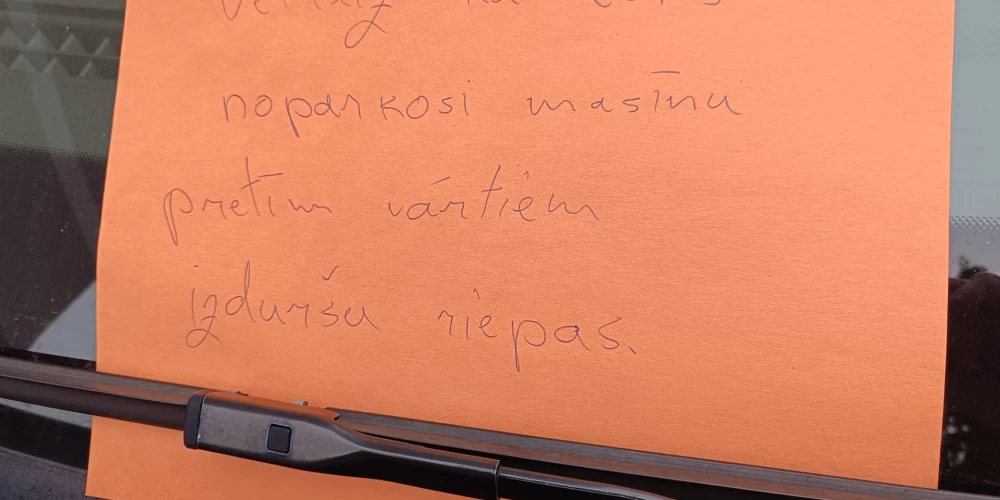 noparkosi masīnu
pretīm vārtiem
izduršu riepas.